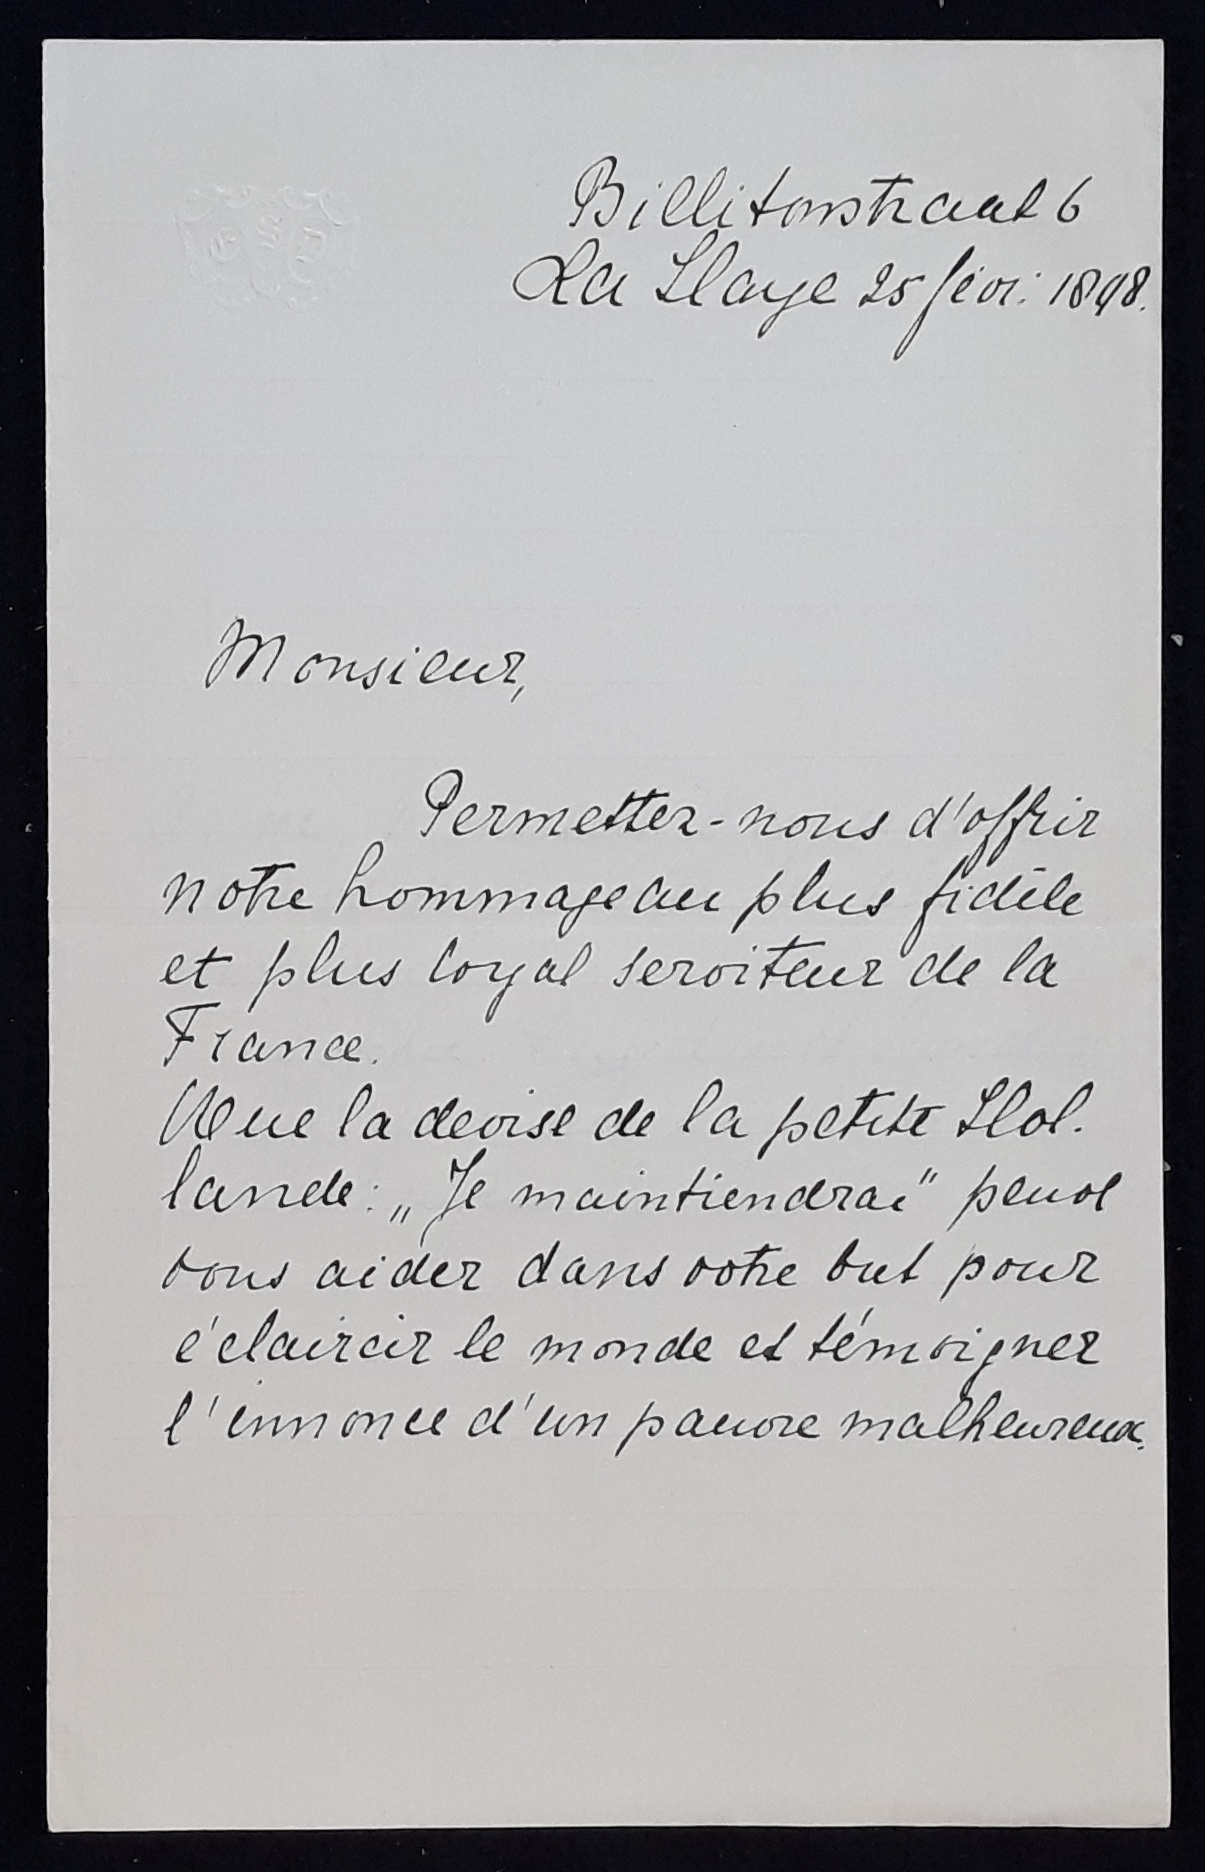 Billitonstraat 6
La Haye 25 févr: 1898.
Monsieur,
Permettez-nous d'offrir
notre hommage au plus fidèle
et plus loyal serviteur de la
France.
Que la devise de la petite Hol-
lande: „Je maintiendrai" peuve
vous aider dans votre but pour
éclaircir le monde et témoigner
l'innonce d'un pauvre malheureux.